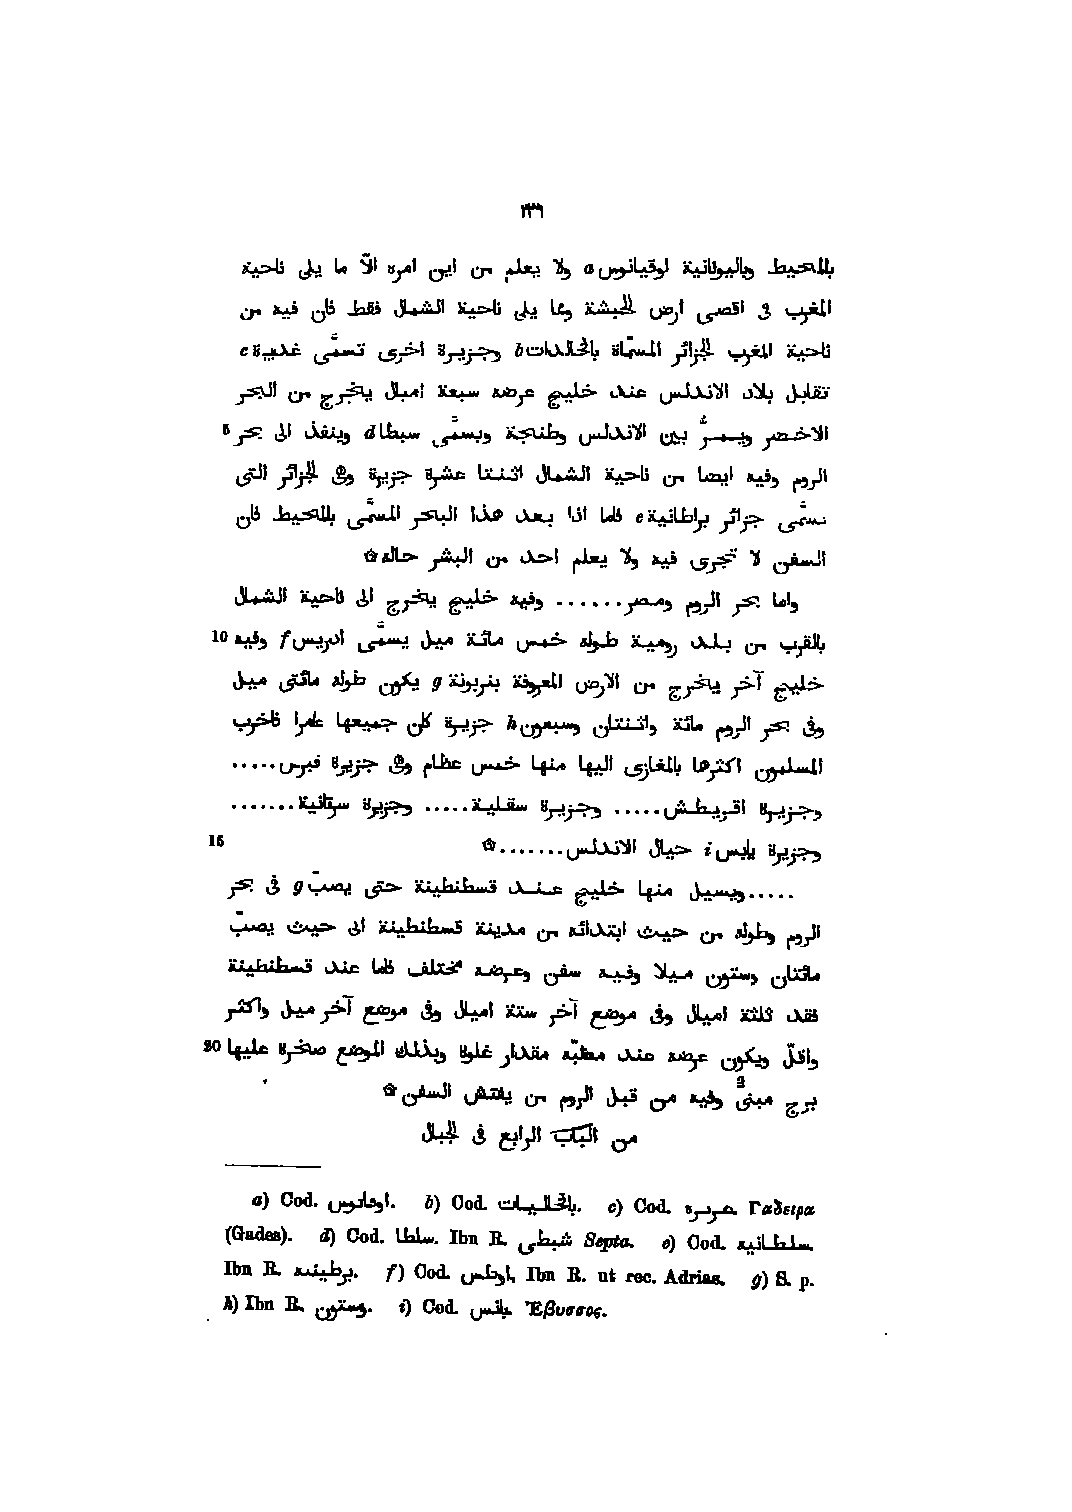 ٢٣٦
بالمحيط وباليونانية لوقيانوس a ولا يعلم من اين امره الّا ما يلى ناحية
المغرب فى اقصى ارض الحبشة ومما يلى ناحية الشمال فقط فان فيه من
ناحية المغرب الجزائر المسمّاة بالخالدات b وجزيرة اخرى تسمَّى غديرة c
تقابل بلاد الاندلس عند خليج عرضه سبعة اميال يخرج من البحر
الاخضر ويمرُّ بين الاندلس وطنجة ويسمَّى سبطا d وينفذ الى بحر 5
الروم وفيه ايضا من ناحية الشمال اثنتا عشرة جزيرة وهى الجزائر التى
تسمَّى جزائر براطانية e فاما اذا بعد هذا البحر المسمَّى بالمحيط فان
السفن لا تجرى فيه ولا يعلم احد من البشر حاله ۞
واما بحر الروم ومصر....... وفيه خليج يخرج الى ناحية الشمال
بالقرب من بلد رومية طوله خمس مائة ميل يسمَّى ادريس f وفيه 10
خليج آخر يخرج من الارض المعروفة بنربونة g يكون طوله مائتى ميل
وفى بحر الروم مائة واثنتان وسبعون h جزيرة كان جميعها عامرا فاخرب
المسلمون اكثرها بالمغازى اليها منها خمس عظام وهى جزيرة قبرس.....
وجزيرة اقريطش..... وجزيرة سقلية..... وجزيرة سرتانية.......
وجزيرة يابس i حيال الاندلس.......۞ 15
.....ويسيل منها خليج عند قسطنطينة حتى يصبّ g فى بحر
الروم وطوله من حيث ابتدائه من مدينة قسطنطينة الى حيث يصبّ
مائتان وستون ميلا وفيه سفن وعرضه مختلف فاما عند قسطنطينة
فقد ثلثة اميال وفى موضع آخر ستة اميال وفى موضع آخر ميل واكثر
واقلّ ويكون عرضه عند مصبّه مقدار غلوة وبذلك الموضع صخرة عليها 20
برج مبنىٌّ وفيه من قبل الروم من يفتش السفن ۞
من الباب الرابع فى الجبال
a) Cod. اوفانوس. b) Cod. بالخالـيات. c) Cod. Γαδειρα
(Gades). d) Cod. سلطا. Ibn R. شبطى Septa. e) Cod. سلطانيه.
Ibn R. برطينيه. f) Cod. اوطس, Ibn R. ut rec. Adrias. g) S. p.
h) Ibn R. وستون. i) Cod. يانس Ἔβυσσος.